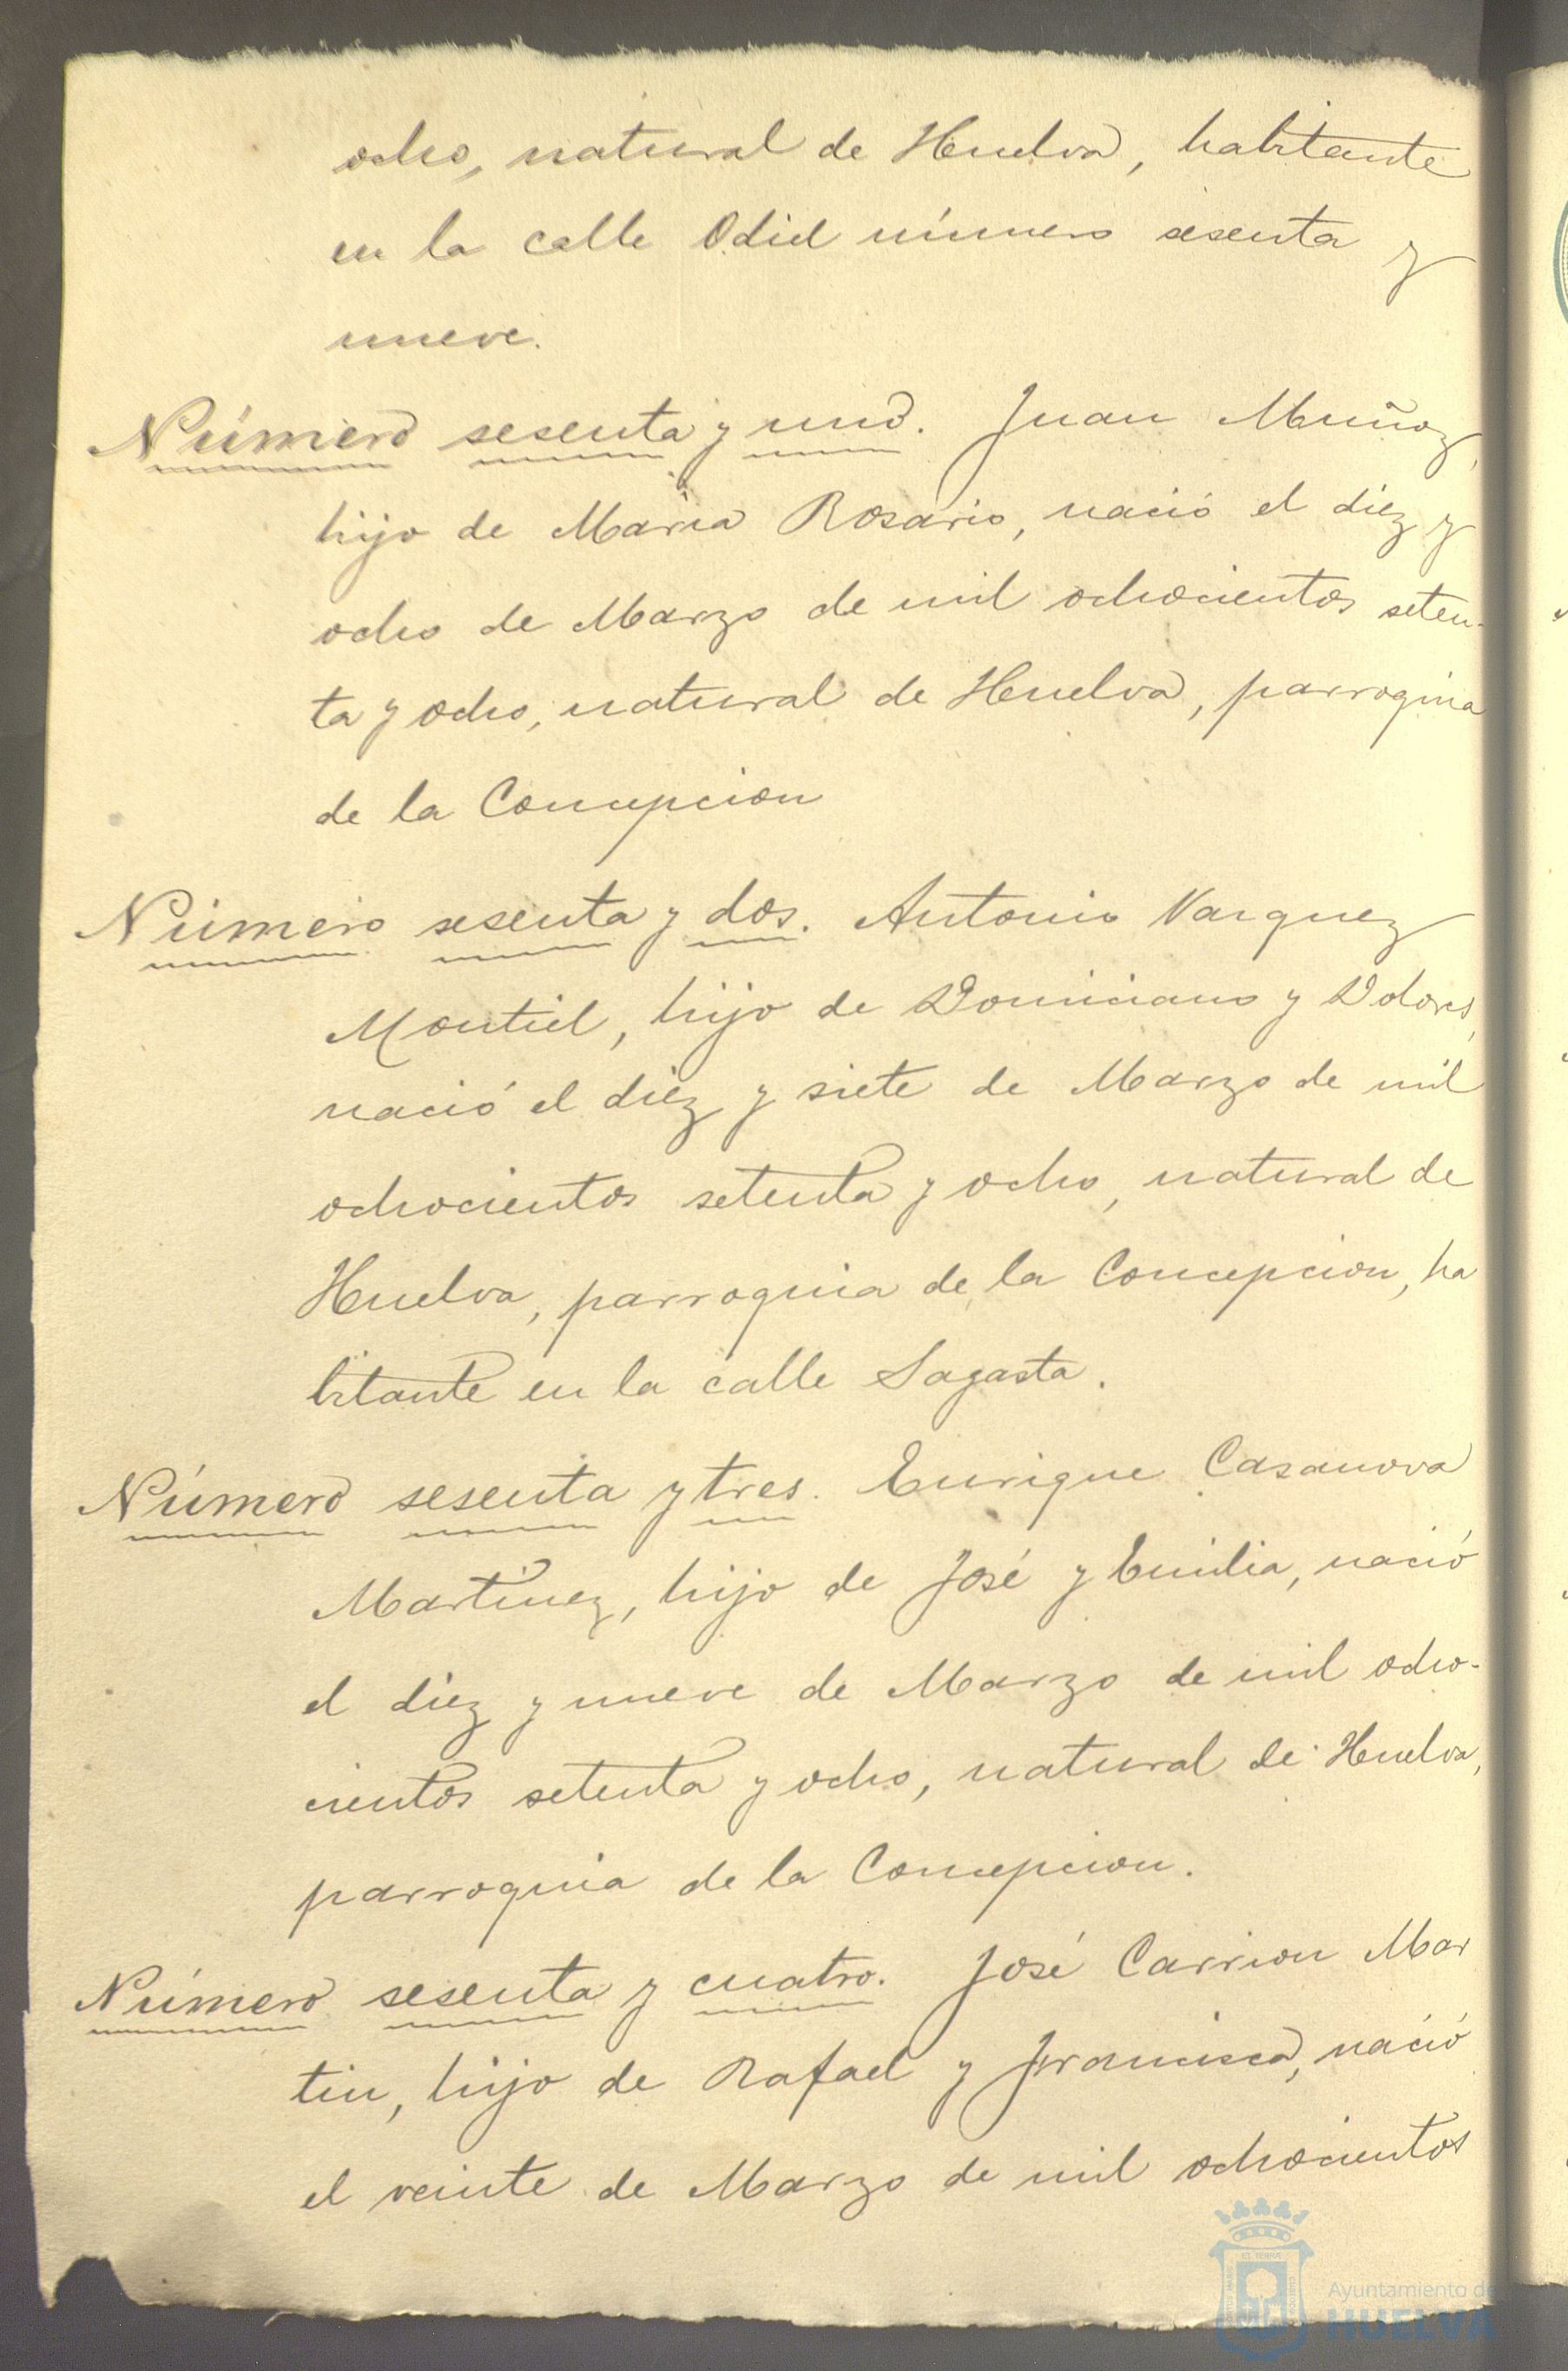 ocho, natural de Huelva, habitante
en la calle Odiel número sesenta y
nueve.
Número sesenta y uno. Juan Muñoz,
hijo de María Rosario, nació el diez y
ocho de Marzo de mil ochocientos seten-
ta y ocho, natural de Huelva, parroquia
de la Concepcion
Número sesenta y dos. Antonio Vazquez
Montiel, hijo de Domiciano y Dolores,
nació el diez y siete de Marzo de mil
ochocientos setenta y ocho, natural de
Huelva, parroquia de la Concepcion, ha
bitante en la calle Sagasta.
Número sesenta y tres. Enrique Casanova
Martinez, hijo de José y Emilia, nació
el diez y nueve de Marzo de mil ocho-
cientos setenta y ocho, natural de Huelva,
parroquia de la Concepcion.
Número sesenta y cuatro. José Carrion Mar
tin, hijo de Rafael y Francisca, nació
el veinte de Marzo de mil ochocientos
Ayuntamiento de
HUELVA